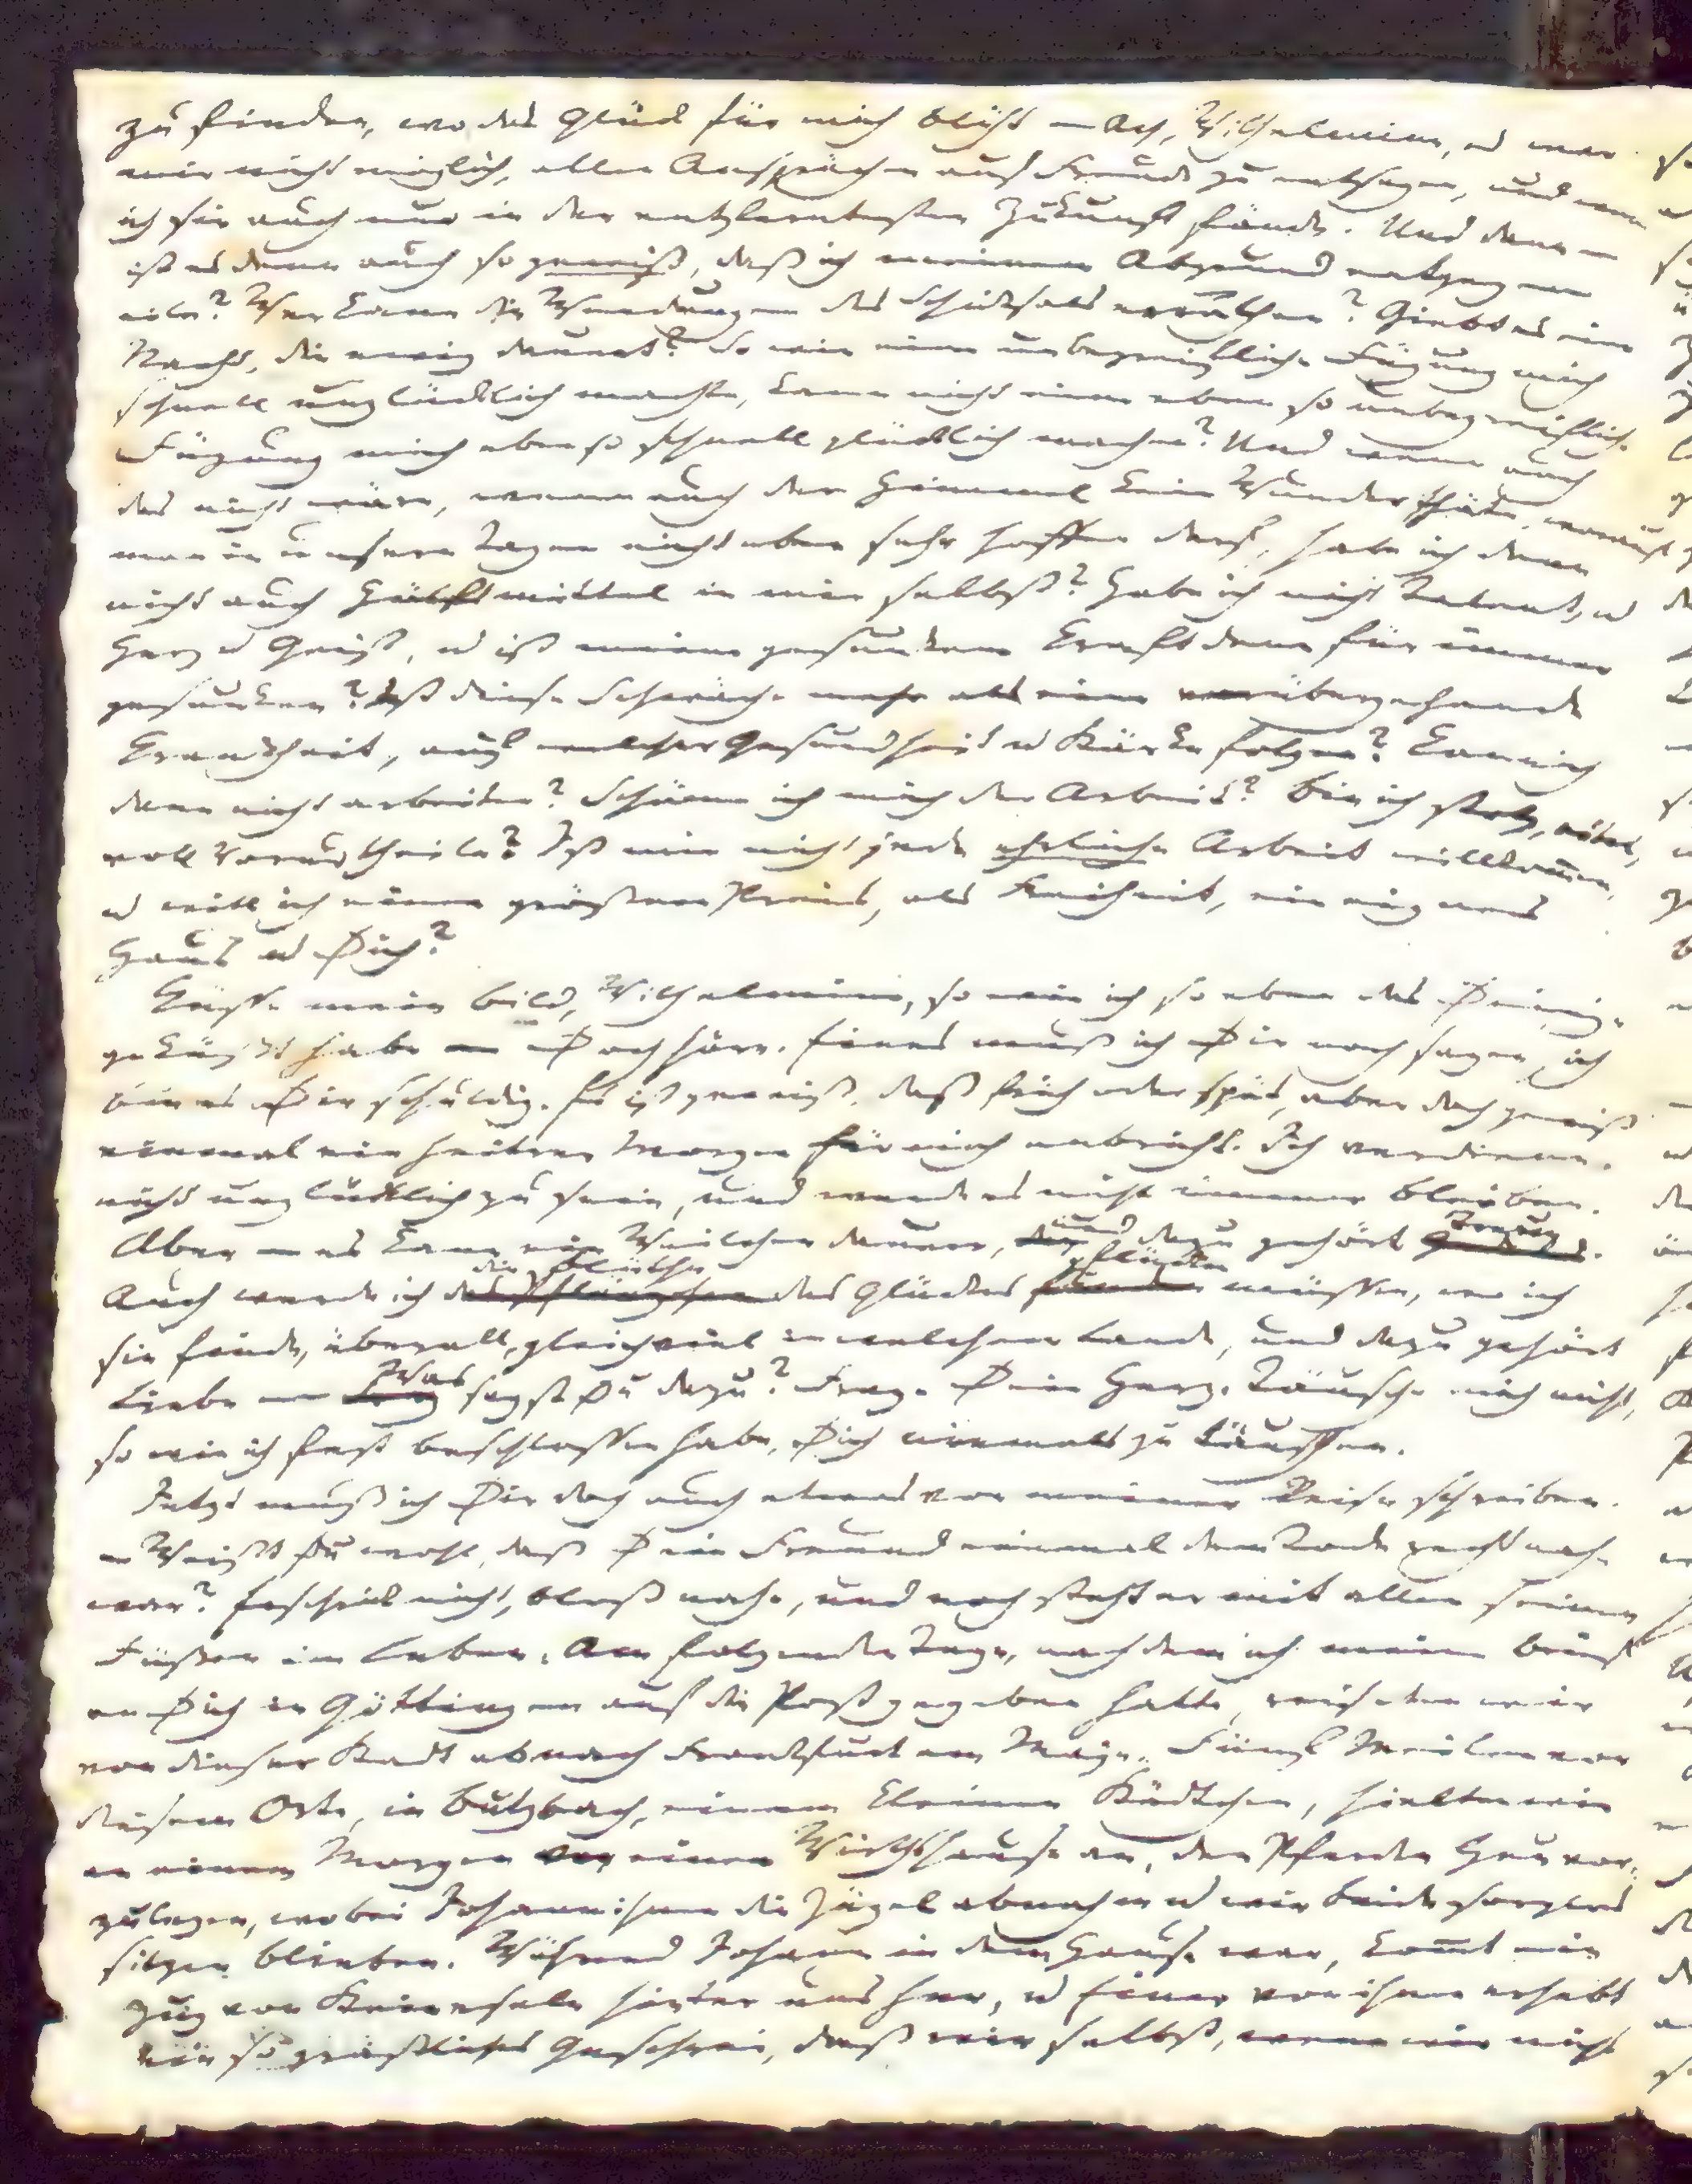 zu finden, wo das Glück für mich blüht — Ach, Wilhelmine, es war
mir nicht möglich, allen Ansprüchen auf Freude zu entsagen, und wenn
ich sie auch nur in der entferntesten Zukunft fände. Und dann —
ist es denn auch so gewiß, daß ich meinem Abgrund entgegen
eile? Wer kann die Wendungen des Schicksals errathen? Giebt es eine
Nacht, die ewig dauert? So wie eine unbegreifliche Fügung mich
schnell unglücklich machte, kann nicht eine eben so unbegreifliche
Fügung mich ebenso schnell glücklich machen? Und wenn auch
das nicht wäre, wenn auch der Himmel kein Wunder thäte, worauf
man in unsern Tagen nicht eben sehr hoffen darf, habe ich denn
nicht auch Hülfsmittel in mir selbst? Habe ich nicht Talent, u
Herz u Geist, u ist meine gesunkene Kraft denn für immer
gesunken? Ist diese Schwäche mehr als eine vorübergehende
Krankheit, auf welcher Gesundheit u Stärke folgen? Kann ich
denn nicht arbeiten? Schäme ich mich der Arbeit? Bin ich stolz, eitel,
voll Vorurtheile? Ist mir nicht jede ehrliche Arbeit willkom̅en,
u will ich einen größern Preis, als Freiheit, ein eignes
Haus u Dich?
Küsse mein Bild, Wilhelmine, so wie ich so eben das Deinige
geküßt habe — Doch höre. Eines muß ich Dir noch sagen, ich
bin es Dir schuldig. Es ist gewiß, daß früh oder spät, aber doch gewiß
einmal ein heitrer Morgen für mich anbricht. Ich verdiene
nicht unglücklich zu sein, und werde es nicht immer bleiben.
Aber — es kann ein Weilchen dauern, und dazu gehört Treue.
Auch werde ich die Blüthe des Glückes pflücken müssen, wo ich
sie finde, überall, gleichviel in welchem Lande, und dazu gehört
Liebe — Was sagst Du dazu? Frage Dein Herz. Täusche mich nicht,
so wie ich fest beschlossen habe, Dich niemals zu täuschen.
Jetzt muß ich Dir doch auch etwas von meiner Reise schreiben.
— Weißt Du wohl, daß Dein Freund einmal dem Tode recht nahe
war? Erschrick nicht, bloß nahe, und noch steht er mit allen seinen
Füßen im Leben. Am folgenden Tage, nachdem ich meinen Brief
an Dich in Göttingen auf die Post gegeben hatte, reiseten wir
von dieser Stadt ab nach Frankfurt am Mayn. Fünf Meilen vor
diesem Orte, in Butzbach, einem kleinen Städtchen, hielten wir
an einem Morgen vor einem Wirthshause an, den Pferden Heu vor-
zulegen, wobei Johann ihnen die Zügel abnahm u wir beide sorglos
sitzen blieben. Während Johann in dem Hause war, kom̅t ein
Zug von Steineseln hinter uns her, u Einer von ihnen erhebt
ein so gräßliches Geschrei, daß wir selbst, wenn wir nicht